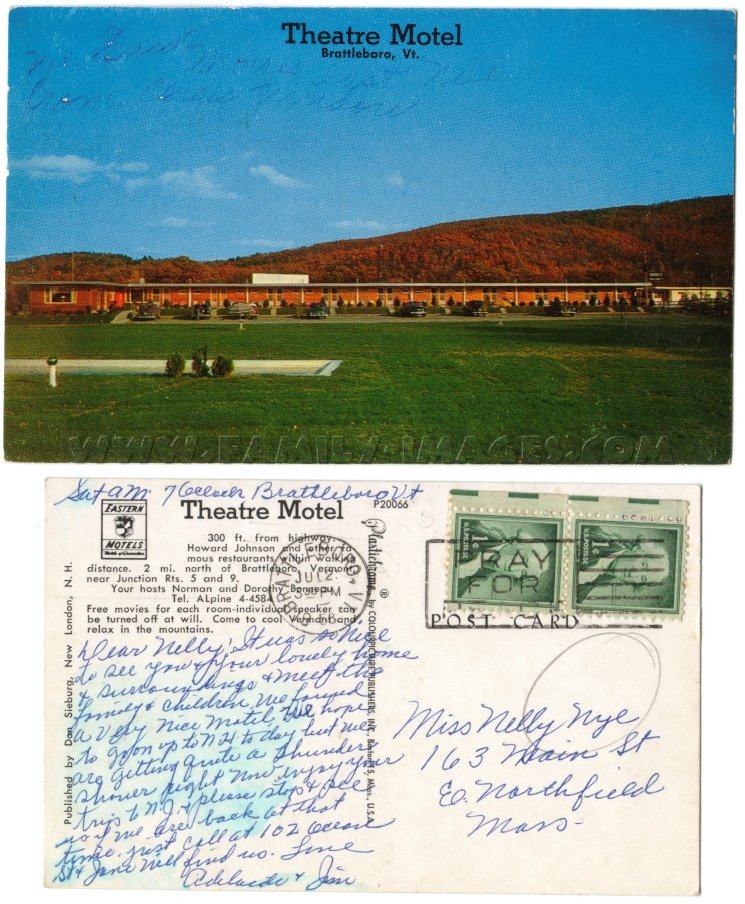 Theatre Motel
Brattleboro, Vt.
from
WWW.2-FAMILY-IMAGES.COM
Sat AM. 7 Oclock Brattleboro Vt
P20066
EASTERN
MOTELS
Theatre Motel
300 ft. from highway.
Howard Johnson and other fa-
mous restaurants within walking
distance. 2 mi. north of Brattleboro, Vermont
near Junction Rts. 5 and 9.
Your hosts Norman and Dorothy
Tel. ALpine 4-4584
Free movies for each room-individual speaker can
be turned off at will. Come to cool Vermont and
relax in the mountains.
Published by Don Sieburg, New London, N. H.
Plastichrome ® by COLOURPICTURE PUBLISHERS, INC., Boston 15, Mass., U.S.A.
BRATTLEBORO, VT.
JUL 2
PM
PRAY
FOR
U.S. POSTAGE
1¢
U.S. POSTAGE
1¢
POST CARD
Dear Nelly, It was so Nice
to see you & your lovely home
& surroundings & meet the
family & children. We found
a Very Nice Motel. We hope
to go on up to N.H. to day but we
are getting quite a thunder
shower right Now. enjoy your
trip to N.J. & please stop & see
us if we are back at that
time. just call at 102 Ocean
St & Jane will find us. Love
Adelaide & Jim
Miss Nelly Nye
163 Main St
E. Northfield
Mass-